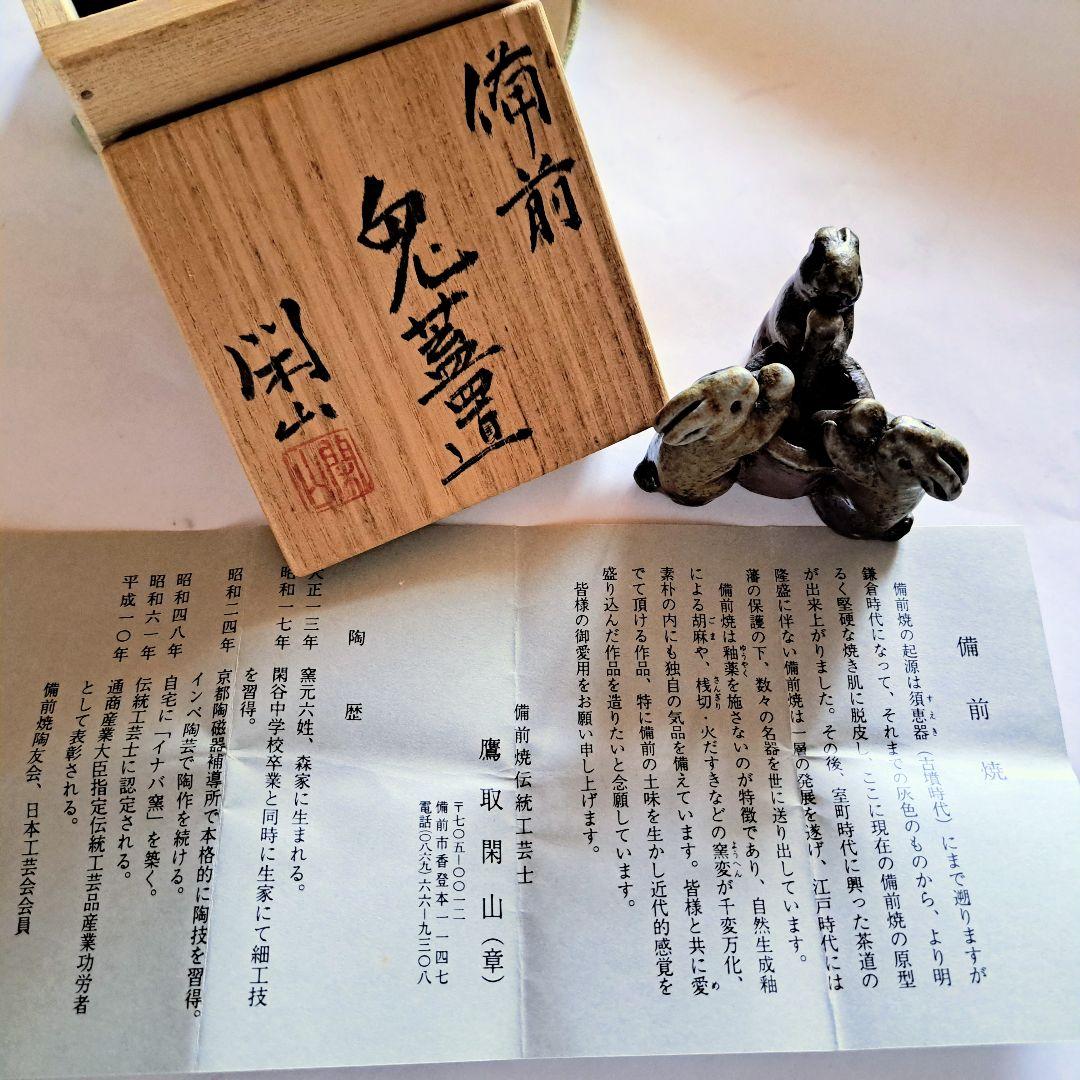 備前
兎蓋置
閑山
閑山
備前焼
備前焼の起源は須恵器（古墳時代）にまで遡りますが
すえき
鎌倉時代になって、それまでの灰色のものから、より明
るく堅硬な焼き肌に脱皮し、ここに現在の備前焼の原型
が出来上がりました。その後、室町時代に興った茶道の
隆盛に伴ない備前焼は一層の発展を遂げ、江戸時代には
藩の保護の下、数々の名器を世に送り出しています。
備前焼は釉薬を施さないのが特徴であり、自然生成釉
ゆうやく
による胡麻や、桟切・火だすきなどの窯変が千変万化、
ごま さんぎり ようへん
素朴の内にも独自の気品を備えています。皆様と共に愛
め
でて頂ける作品、特に備前の土味を生かし近代的感覚を
盛り込んだ作品を造りたいと念願しています。
皆様の御愛用をお願い申し上げます。
備前焼伝統工芸士
鷹取閑山（章）
〒七〇五－〇〇一二
備前市香登本一一四七
電話（〇八六九）六六－九三〇八
陶歴
大正一三年 窯元六姓、森家に生まれる。
昭和一七年 閑谷中学校卒業と同時に生家にて細工技
を習得。
昭和二四年 京都陶磁器補導所で本格的に陶技を習得。
インベ陶芸で陶作を続ける。
昭和四八年 自宅に「イナバ窯」を築く。
昭和六一年 伝統工芸士に認定される。
平成一〇年 通商産業大臣指定伝統工芸品産業功労者
として表彰される。
備前焼陶友会、日本工芸会会員